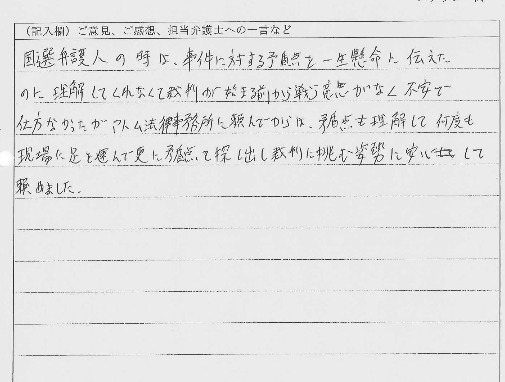 (記入欄) ご意見、ご感想、担当弁護士への一言など
国選弁護人の時は、事件に対する矛盾点を一生懸命に伝えた
のに理解してくれなくて裁判が始まる前から戦う意思がなく不安で
仕方なかったがアトム法律事務所に頼んでからは、矛盾点も理解して何度も
現場に足を運んで更に矛盾点て探し出し裁判に挑む姿勢に安心して
頼めました。